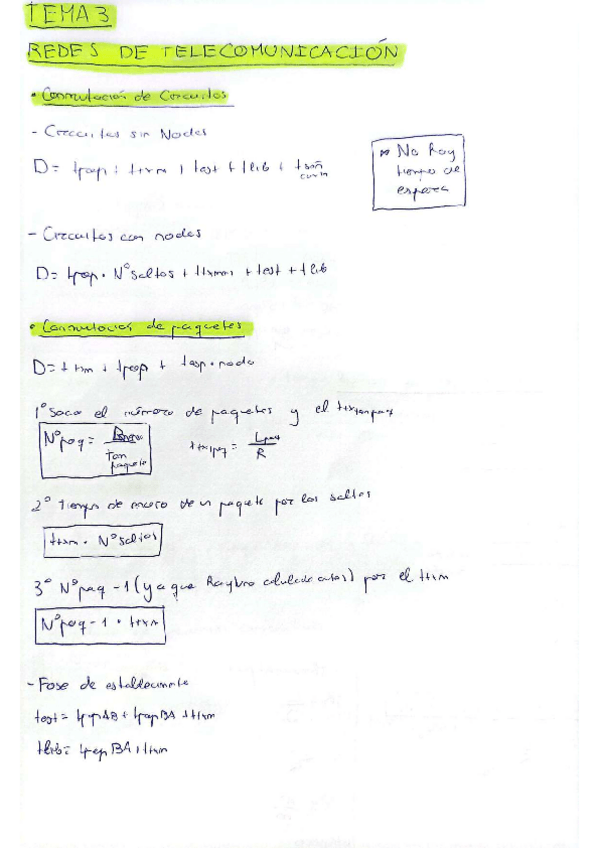 TEMA 3
REDES DE TELECOMUNICACIÓN
• Conmutación de Circuitos
- Circuitos sin Nodos
D = tprop + ttxm + test + tlib + t
* No hay
tiempo de
espera
- Circuitos con nodos
D = tprop · Nº saltos + ttxmen + test + tlib
• Conmutacion de paquetes
D = ttxm + tprop + tesp · nodo
1º Saco el número de paquetes y el
Nºpaq = / tam paquete
ttx1paq = Lpaq / R
2º Tiempo de envio de un paquete por los saltos
ttxm · Nº saltos
3º Nº paq - 1 (ya que calculado antes) por el ttxm
Nºpaq - 1 · ttxm
- Fase de establecimiento
test = tpropAB + tpropBA + ttxm
tlib = tpropBA + ttxm